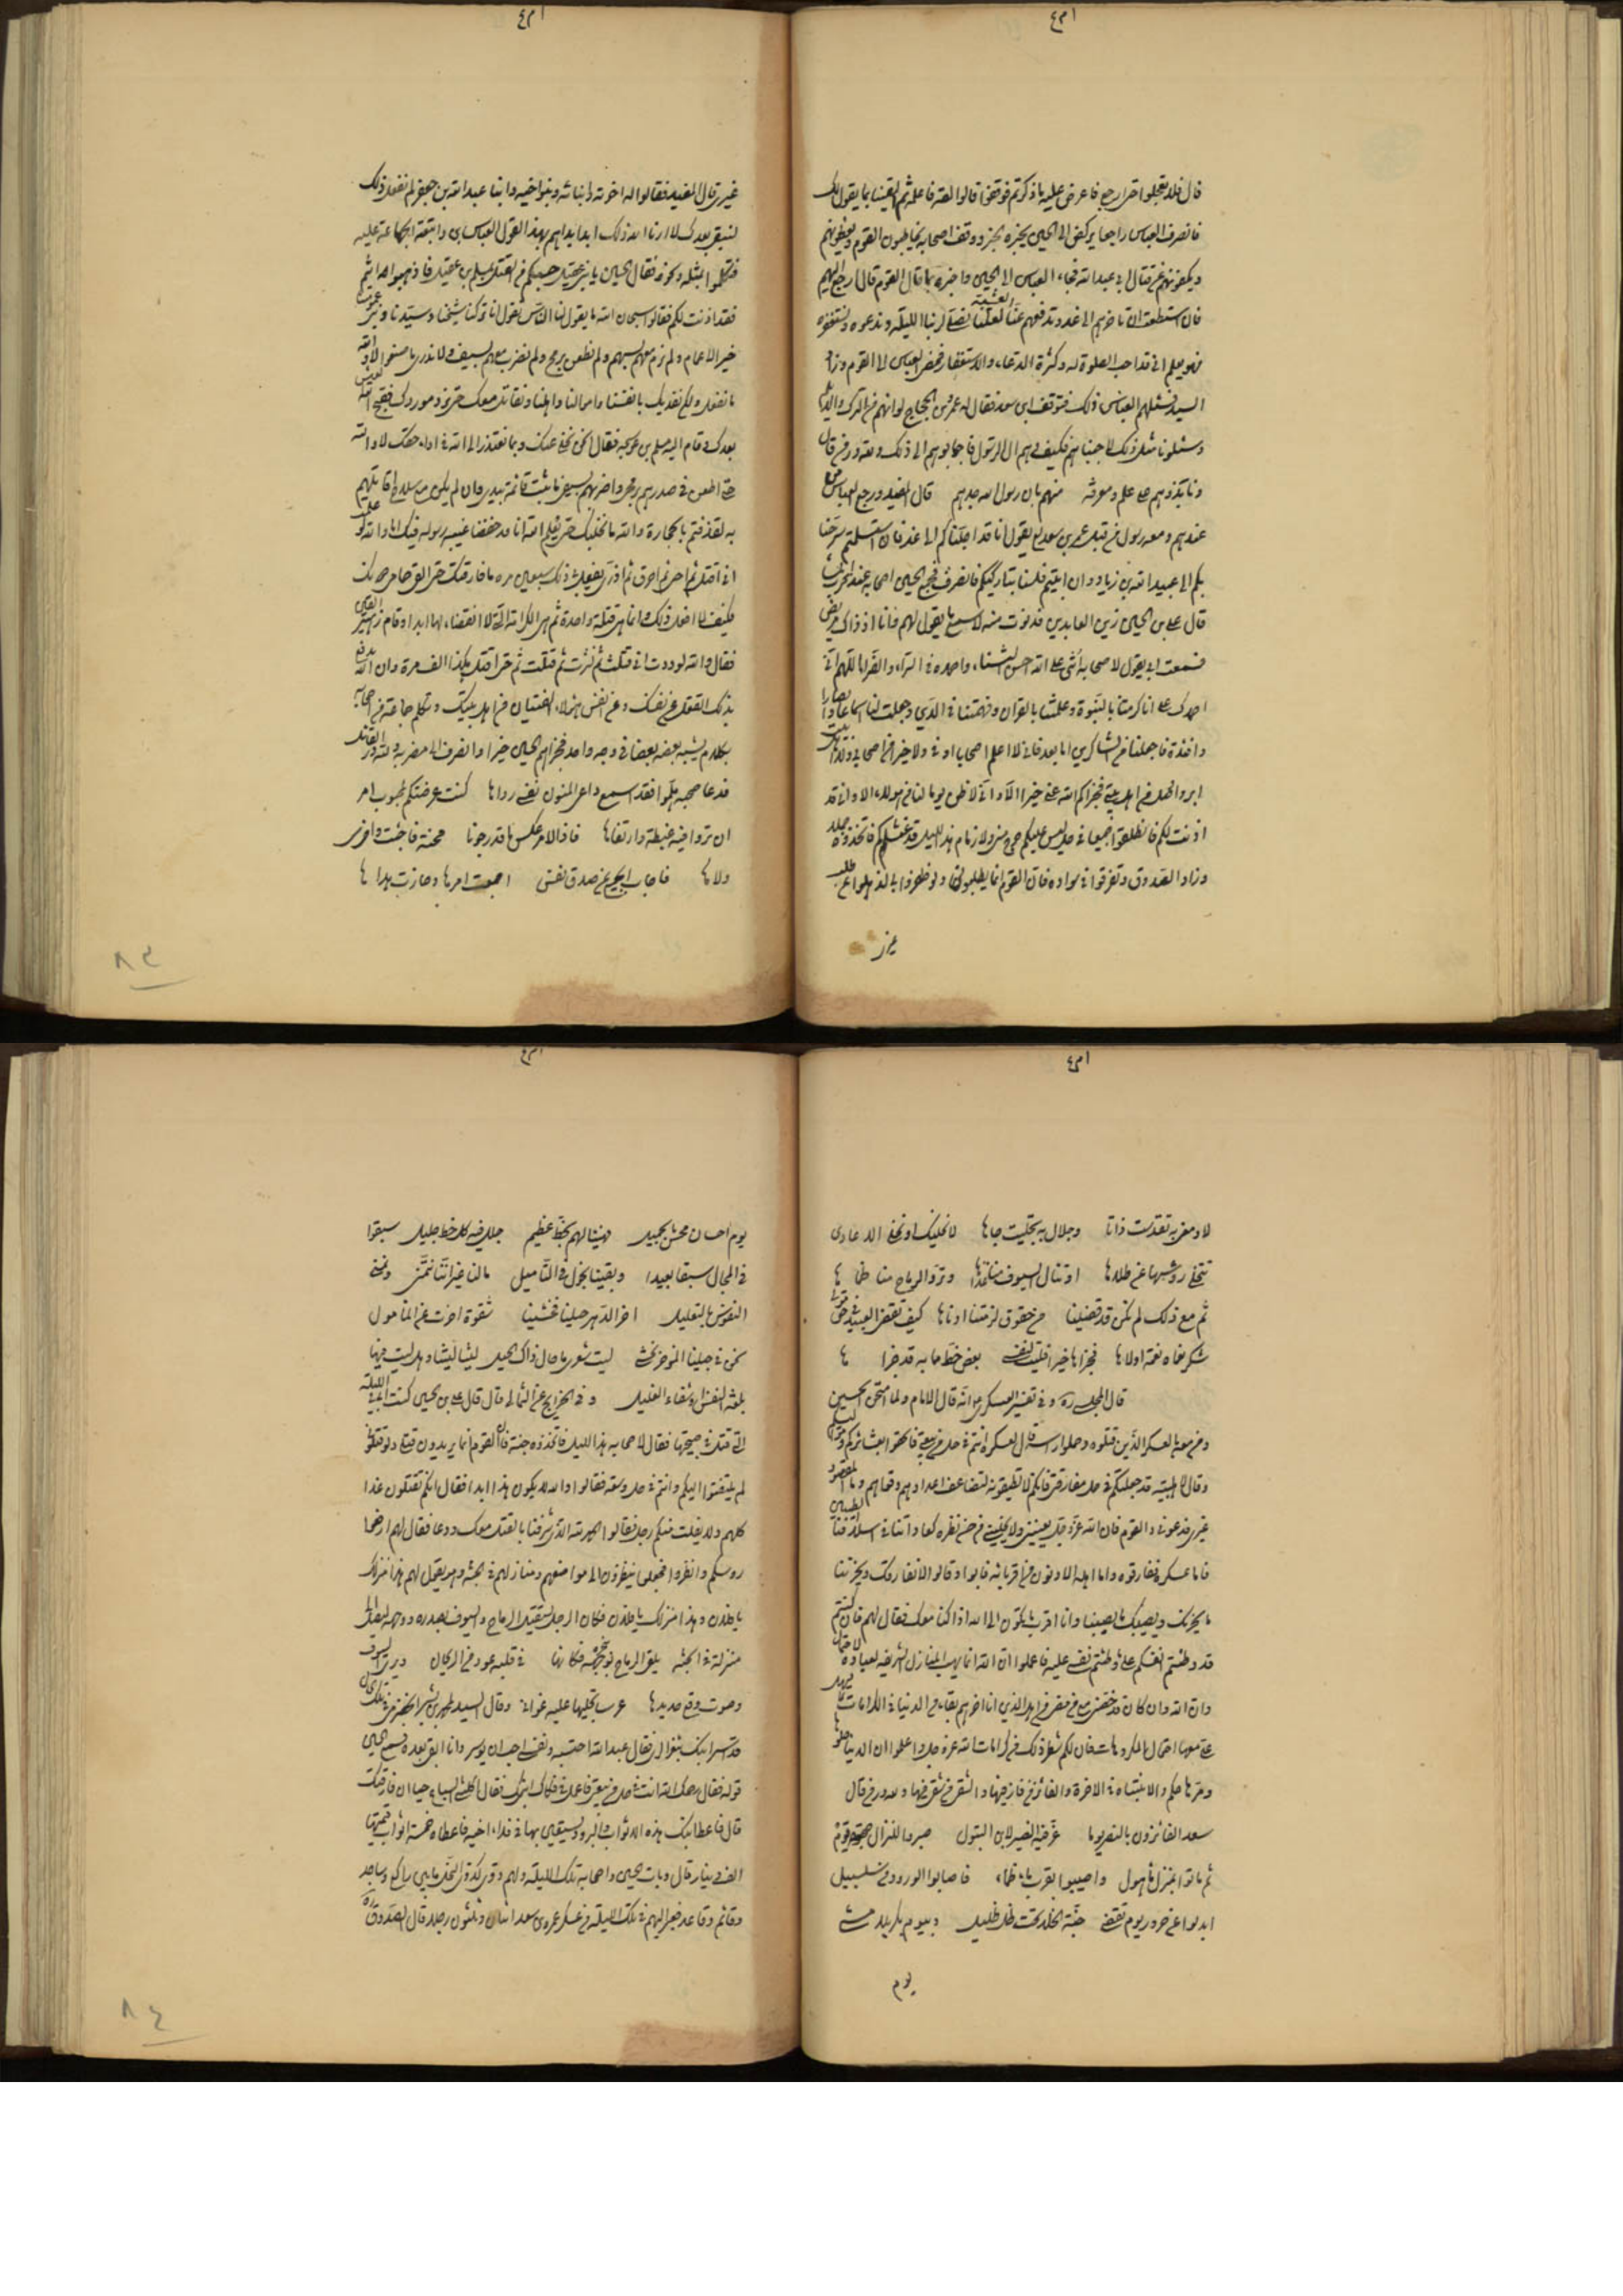 قال فلا تعجلوا حتى ارجع فاعرض عليه ما ذكرتم فوقفوا قالوا القه فاعلمه ثم القينا بما يقول لك
فانصرف العباس راجعا يركض الى الحسين يخبره بخبر ووقف اصحابه يخاطبون القوم ويعظونهم
ويكفونهم عن قتال ابي عبد الله فجاء العباس الى الحسين واخبره بما قال القوم قال ارجع اليهم
فان استطعت ان تاخرهم الى غد وتدفعهم عنا العشية لعلنا نصلي لربنا الليلة وندعوه ونستغفره
فهو يعلم اني قد احب الصلوة له وكثرة الدعاء والاستغفار فمضى العباس الى القوم وزاد
السيد فسئلهم العباس ذلك فتوقف ابن سعد فقال له عمرو بن الحجاج لو انهم من الترك والديلم
وسئلونا مثل ذلك لاجبناهم فكيف وهم ال الرسول فاجابوهم الى ذلك ولله در من قال
ونابذوهم على علم ومعرفة منهم بان رسول الله جدهم قال المفيد ورجع العباس من
عندهم ومعه رسول من قبل عمر بن سعد يقول انا قد اجلناكم الى غد فان استسلمتم سرحنا
بكم الى عبيد الله بن زياد وان ابيتم فلسنا بتاركيكم فانصرف فجمع الحسين اصحابه عند قرب المساء
قال علي بن الحسين زين العابدين فدنوت منه لاسمع ما يقول لهم وانا اذ ذاك مريض
فسمعت ابي يقول لاصحابه اثنى على الله احسن الثناء واحمده في السراء والضراء اللهم اني
احمدك على ان اكرمتنا بالنبوة وعلمتنا بالقران وفهمتنا في الدين وجعلت لنا اسماعا وابصارا
وافئدة فاجعلنا من الشاكرين اما بعد فاني لا اعلم اصحابا اوفى ولا خيرا من اصحابي ولا اهل بيت
ابر واوصل من اهل بيتي فجزاكم الله عني خيرا الا واني لاظن يوما لنا من هؤلاء الا واني قد
اذنت لكم فانطلقوا جميعا في حل ليس عليكم حرج مني ولا ذمام هذا الليل قد غشيكم فاتخذوه جملا
وزاد الصدوق وتفرقوا في سواده فان القوم انما يطلبونني ولو ظفروا بي لذهلوا عن طلب
غيري
غيري قال المفيد فقالوا له اخوته وابنائه وبنوا اخيه وابنا عبد الله بن جعفر لم نفعل ذلك
لنبقى بعدك لا ارانا الله ذلك ابدا بداهم بهذا القول العباس بن واتبعته الجماعة عليه
فتكلموا بمثله ونحوه فقال الحسين يا بني عقيل حسبكم من القتل بمسلم بن عقيل فاذهبوا انتم
فقد اذنت لكم فقالوا سبحان الله ما يقول لنا الناس نقول انا تركنا شيخنا وسيدنا وبني عمومتنا
خير الاعمام ولم نرم معهم بسهم ولم نطعن برمح ولم نضرب معهم بسيف ولا ندري ما صنعوا لا والله
ما نفعل ولكن نفديك بانفسنا واموالنا واهلنا ونقاتل معك حتى نرد موردك فقبح الله العيش
بعدك وقام اليه مسلم بن عوسجة فقال انحن نخلي عنك وبما نعتذر الى الله في اداء حقك لا والله
حتى اطعن في صدورهم برمحي واضربهم بسيفي ما ثبت قائمه بيدي وان لم يكن معي سلاح اقاتلهم
به لقذفتهم بالحجارة والله ما نخليك حتى يعلم الله انا قد حفظنا غيبة رسوله فيك اما والله لو علمت
اني اقتل ثم احيى ثم احرق ثم اذرى يفعل بي ذلك سبعين مرة ما فارقتك حتى القى حمامي دونك
فكيف لا افعل ذلك وانما هي قتلة واحدة ثم هي الكرامة التي لا انقضاء لها ابدا وقام زهير بن القين
فقال والله لوددت اني قتلت ثم نشرت ثم قتلت ثم حتى اقتل هكذا الف مرة وان الله يدفع
بذلك القتل عن نفسك وعن انفس هؤلاء الفتيان من اهل بيتك وتكلم جماعة من اصحابه
بكلام يشبه بعضه بعضا في وجه واحد فجزاهم الحسين خيرا وانصرف الى مضربه ولله در القائل
قد عا صحبه هلموا فقد اسمع داعي المنون نفسي رداها كنت عرضتكم لمحبوب امر
ان تروا فيه غبطة وارتفاها فاذا الامر عكس ما قد رجونا محنة فاجئت واخرى
ولاها فاجاب الجميع عن صدق نفس اجمعت امرها وحازت هداها
لا ومعز به تقدست ذاتا وجلال به تجليت جاها لا نخليك او نخلي الاعادي
تتخلى رؤسها عن طلاها او تنال السيوف منا غذاها وتروي الرماح منا ظماها
ثم مع ذلك لم نكن قد قضينا من حقوق لزمتنا اوناها كيف تقضي العبيد من حق مولى
شكر نعماه نعمة اولاها فجزاها خيرا فليت لنفسي بعض حظ ما به قد جزاها
قال المجلسي ره وفي تفسير العسكري انه قال الامام ولما امتحن الحسين
ومن معه بالعسكر الذين قتلوه وحملوا راسه قال لعسكره انتم في حل من بيعتي فالحقوا بعشائركم ومواليكم
وقال لاهل بيته قد جعلتكم في حل من مفارقتي فانكم لا تطيقونهم لتضاعف اعدادهم وقواهم وما المقصود
غيري فدعوني والقوم فان الله عز وجل يعينني ولا يخليني من حسن نظره كعادته في اسلافنا الطيبين
فاما عسكره ففارقوه واما اهله الادنون من اقربائه فابوا وقالوا لا نفارقك ويحزننا
ما يحزنك ويصيبنا ما يصيبك وانا اقرب ما نكون الى الله اذا كنا معك فقال لهم فان كنتم
قد وطنتم انفسكم على ما وطنتم نفسي عليه فاعلموا ان الله انما يهب المنازل الشريفة لعباده لاحتمال
وان الله وان كان قد خصني مع من مضى من اهلي الذين انا اخرهم بقاء في الدنيا من الكرامات بما يسهل
علي معها احتمال المكروهات فان لكم شطر ذلك من كرامات الله عز وجل واعلموا ان الدنيا حلوها
ومرها حلم والانتباه في الاخرة والفائز من فاز فيها والشقي من شقي فيها ولله در من قال
سعد الفائزون بالنصر يوما عز فيه النصير لابن البتول صبروا للنزال
ثم باتوا بمنزل مأهول واصيبوا بقرب ماء ظماء فاصابوا الورود من سلسبيل
ابدلوا عن حرور يوم تقضى جنة الخلد تحت ظل ظليل وبيوم بكربلا مشى
يوم
يوم احسان محسن بجميل فهنيئا لهم بحظ عظيم جل فيه كل خطب جليل سبقوا
في المجال سبقا بعيدا وبقينا نجول في التأميل ما لنا غير اننا نتمنى ونمني
النفوس بالتعليل اخر الدهر حيلنا فشقينا شقوة اخرت عن المأمول
نحن في جيلنا المؤخر نحثي ليت شعري ما حال ذاك الجيل ليتنا ليتنا وهل ليت فيها
بلغة النفس او شفاء الغليل وفي الخرايج عن الثمالي قال قال علي بن الحسين كنت مع ابي الليلة
التي قتل في صبيحتها فقال لاصحابه هذا الليل فاتخذوه جنة فان القوم انما يريدونني ولو قتلوني
لم يلتفتوا اليكم وانتم في حل وسعة فقالوا والله لا يكون هذا ابدا فقال انكم تقتلون غدا
كلهم ولا يفلت منكم رجل فقالوا الحمد لله الذي شرفنا بالقتل معك ودعا فقال لهم ارفعوا
روسكم وانظروا فجعلوا ينظرون الى مواضعهم ومنازلهم في الجنة وهو يقول لهم هذا منزلك
يا فلان وهذا منزلك يا فلان فكان الرجل يستقبل الرماح والسيوف بصدره ووجهه ليصل الى
منزله في الجنة يلقى الرماح بنحره فكانما في قلبه عود من الريحان ويرى السيوف
وصوت وقع حديدها عرسا تجليها عليه غوان وقال السيد
قد اسر ابنك بثغر الري فقال عند الله احتسبه ونفسي ما احب ان يؤسر وانا ابقى بعده فسمع الحسين
قوله فقال رحمك الله انت في حل من بيعتي فاعمل في فكاك ابنك فقال اكلتني السباع حيا ان فارقتك
قال فاعط ابنك هذه الاثواب البرود يستعين بها في فداء اخيه فاعطاه خمسة اثواب قيمتها
الف دينار قال وبات الحسين واصحابه تلك الليلة ولهم دوي كدوي النحل ما بين راكع وساجد
وقائم وقاعد فعبر اليهم في تلك الليلة من عسكر عمر بن سعد اثنان وثلثون رجلا قال الصدوق ره